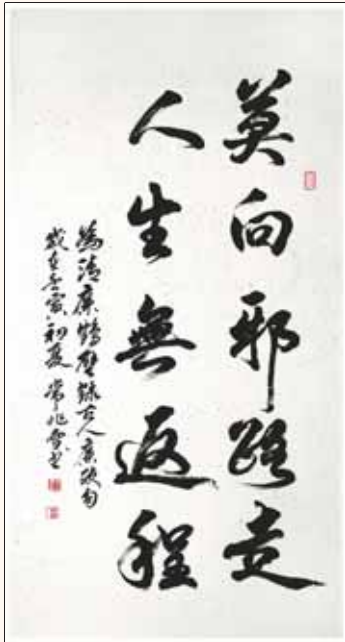 莫向邪路走
人生無返程
為清廉鶴壁錄古人廉政句
歲在
初夏 常兆
書